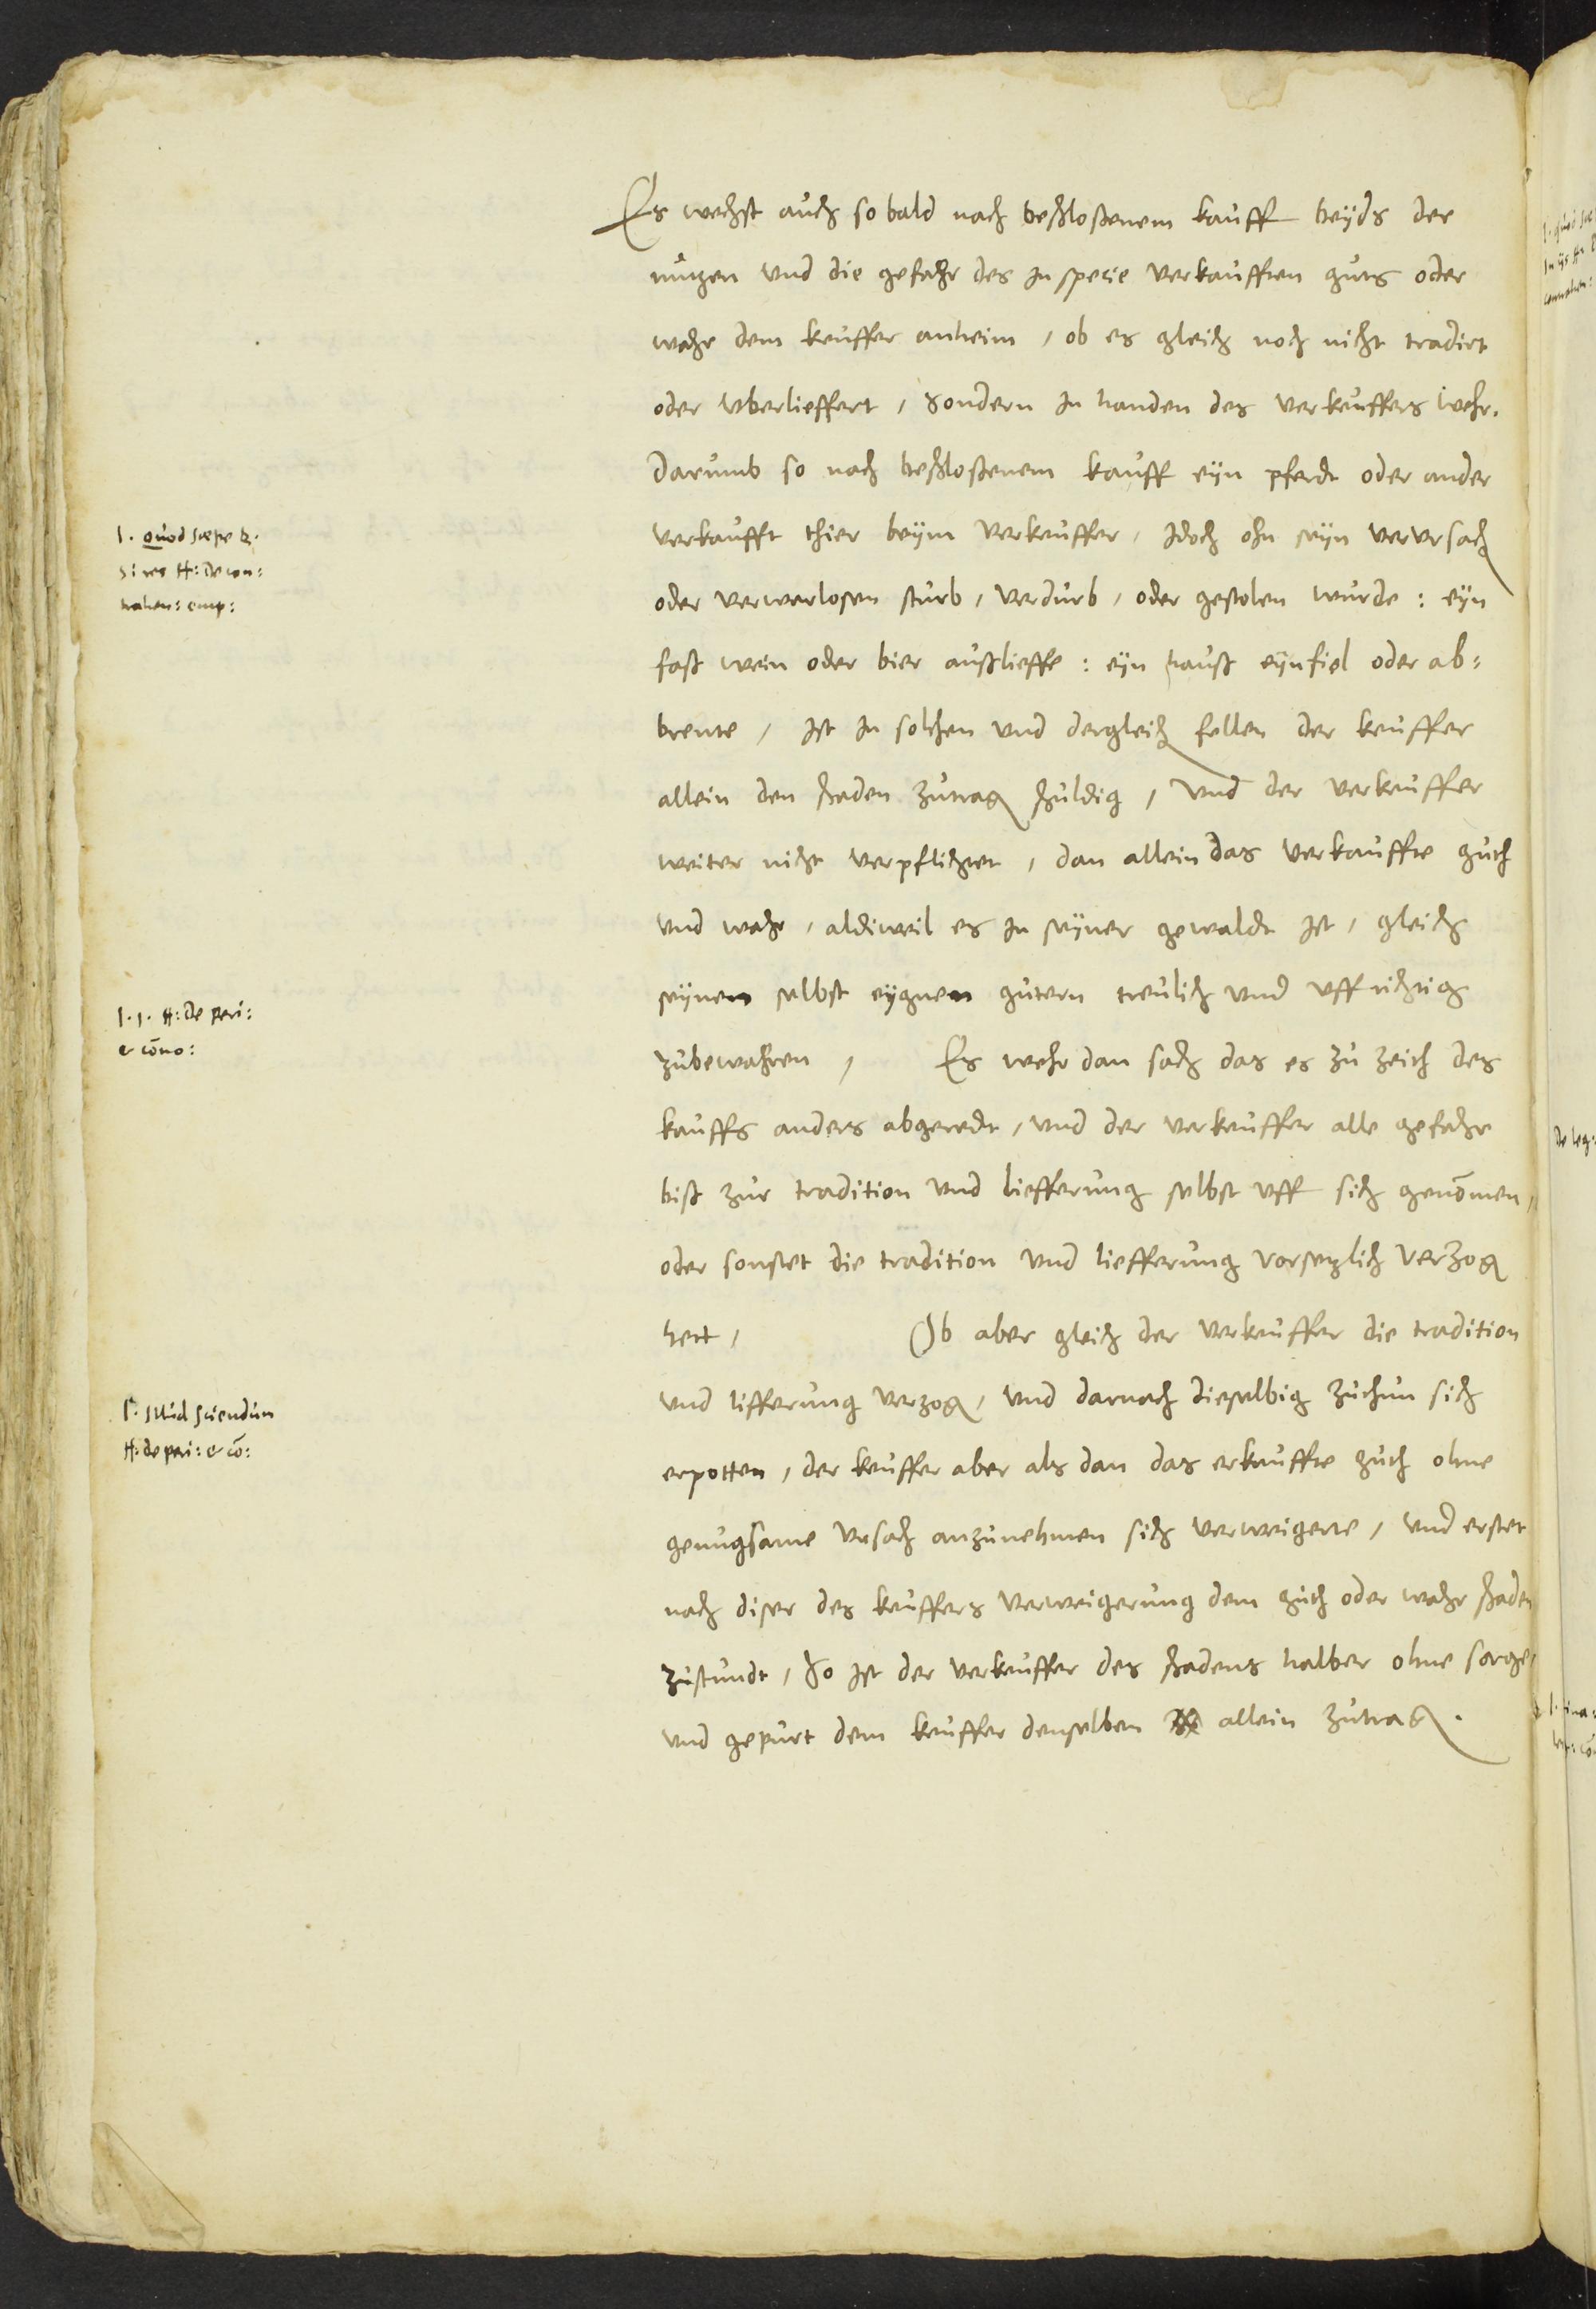 Es wechst auch so bald nach beschloßenem kauff beÿds der
nutzen vnd die gefahr des in specie verkaufften guts oder
wahr dem keuffer anheim, ob es gleich noch nicht tradirt
oder vberlieffert, sondern in handen des verkeuffers wehr.
darumb so nach beschloßenem kauff eÿn pferdt oder ander
verkaufft thier beÿm verkeuffer, idoch ohn seÿn vervrsach
oder verwarlosen sturb, verdurb, oder gestolen wurde: eÿn
faß wein oder bier außlieffe: eÿn hauß eÿnfiel oder ab=
brente, ist in solchen vnd dergleich fellen der keuffer
allein den schaden zutrag schuldig, vnd der verkeuffer
weiter nicht verpflichtet, dan allein das verkauffte guth
vnd wahr, aldiweil es in seÿner gewaldt ist, gleich
seÿnem selbst eÿgnem gutern treulich vnd vffrichtig
zubewahren, Es wehr dan sach das es zu zeith des
kauffs anders abgeredt, vnd der verkeuffer alle gefahr
biß zur tradition vnd liefferung selbst vff sich genommen,
oder sonstet die tradition vnd liefferung vorsetzlich verzog
hett, Ob aber gleich der verkeuffer die tradition
vnd lifferung verzog, vnd darnach dieselbig zuthun sich
erpotten, der keuffer aber als dan das erkauffte guth ohne
genugsame vrsach anzunehmen sich verweigerte, vnd erstet
nach diser des keuffers verweigerung dem guth oder wahr schaden
zustundt, So ist der verkeuffer des schadens halber ohne sorge,
vnd gepurt dem keuffer denselben allein zutrag.
l. quod saepe §.
si res ff: de con:
trahen: emp:
l. 1. ff: de peri:
et com̄o:
l. illud sciendum
ff: de peri: et cō: